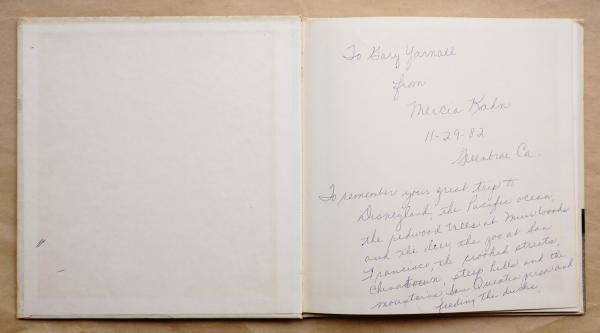 To Gary Yarnall
from
Mercia Kahn
11-29-82
Greenbrae Ca.
To remember your great trip to
Disneyland, the Pacific ocean,
the redwood trees at Muir Woods
and the deer, the zoo at San
Francisco, the crooked streets,
Chinatown, steep hills and the
mountains San Quentin prison and
feeding the ducks.